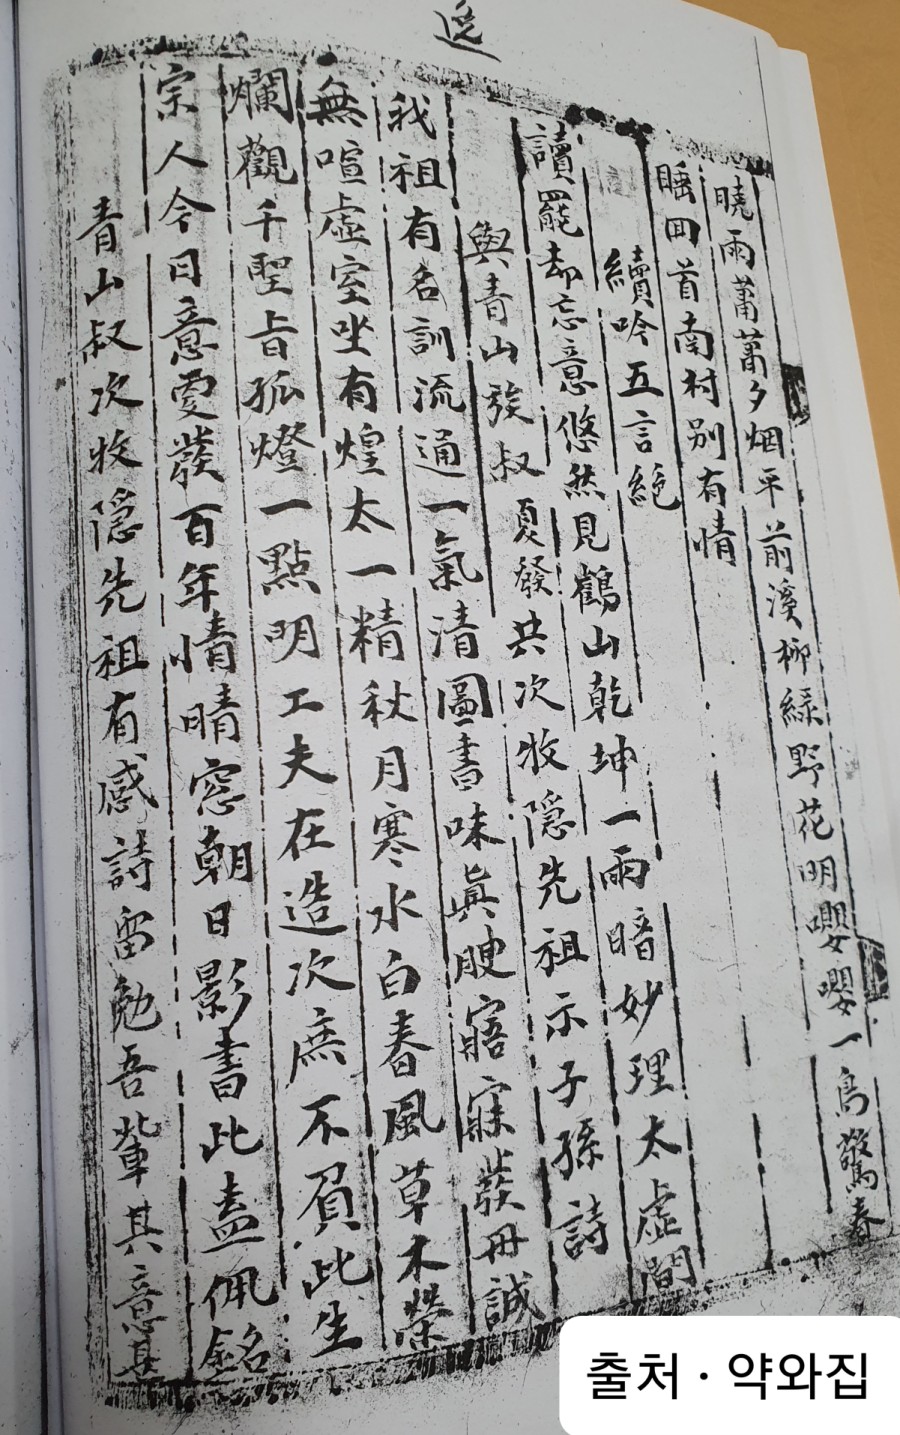 逸
曉雨蕭蕭夕烟平前溪柳綠野花明嚶嚶一鳥驚春
睡回首南村別有情
續吟五言絶
讀罷却忘意悠然見鶴山乾坤一雨暗妙理太虛間
與青山族叔夏發共次牧隐先祖示子孫詩
我祖有名訓流通一氣清圖書味眞腴寤寐裝冊誠
無喧虛室坐有煌太一精秋月寒水白春風草木榮
爛觀千聖旨孤燈一點明工夫在造次庶不負此生
宗人今日意更發百年情晴窓朝日影書此盍佩銘
青山叔次牧隐先祖有感詩留勉吾輩其意甚
출처 · 약와집